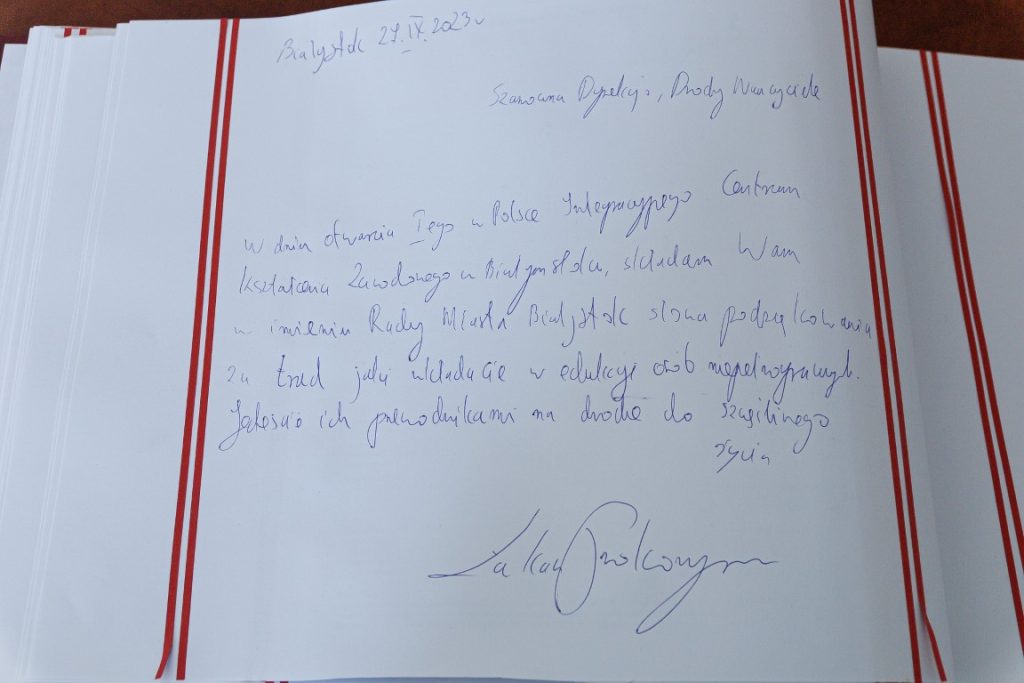 Białystok 27.IX.2023r
Szanowna Dyrekcjo, Drodzy Nauczyciele
W dniu otwarcia Iego w Polsce Integracyjnego Centrum
Kształcenia Zawodowego w Białymstoku, składam Wam
w imieniu Rady Miasta Białystok słowa podziękowania
za trud jaki wkładacie w edukację osób niepełnosprawnych.
Jesteście ich przewodnikami na drodze do szczęśliwego
życia